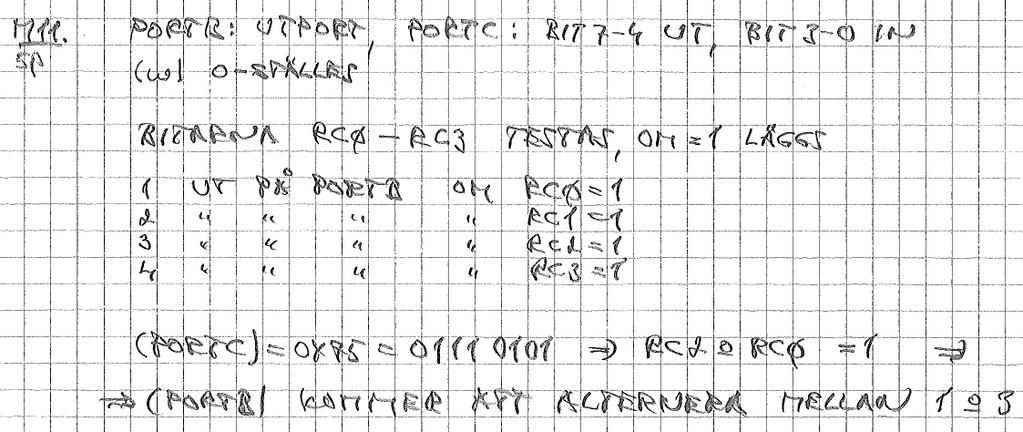 M11. PORTB: UTPORT, PORTC: BIT 7-4 UT, BIT 3-0 IN
5P (W) 0-STÄLLES
BITARNA RC0 - RC3 TESTAS, OM = 1 LÄGGS
1 UT PÅ PORTB OM RC0 = 1
2 " " " " RC1 = 1
3 " " " " RC2 = 1
4 " " " " RC3 = 1
(PORTC) = 0X75 = 0111 0101 ⇒ RC2 o RC0 = 1 ⇒
⇒ (PORTB) KOMMER ATT ALTERNERA MELLAN 1 o 3